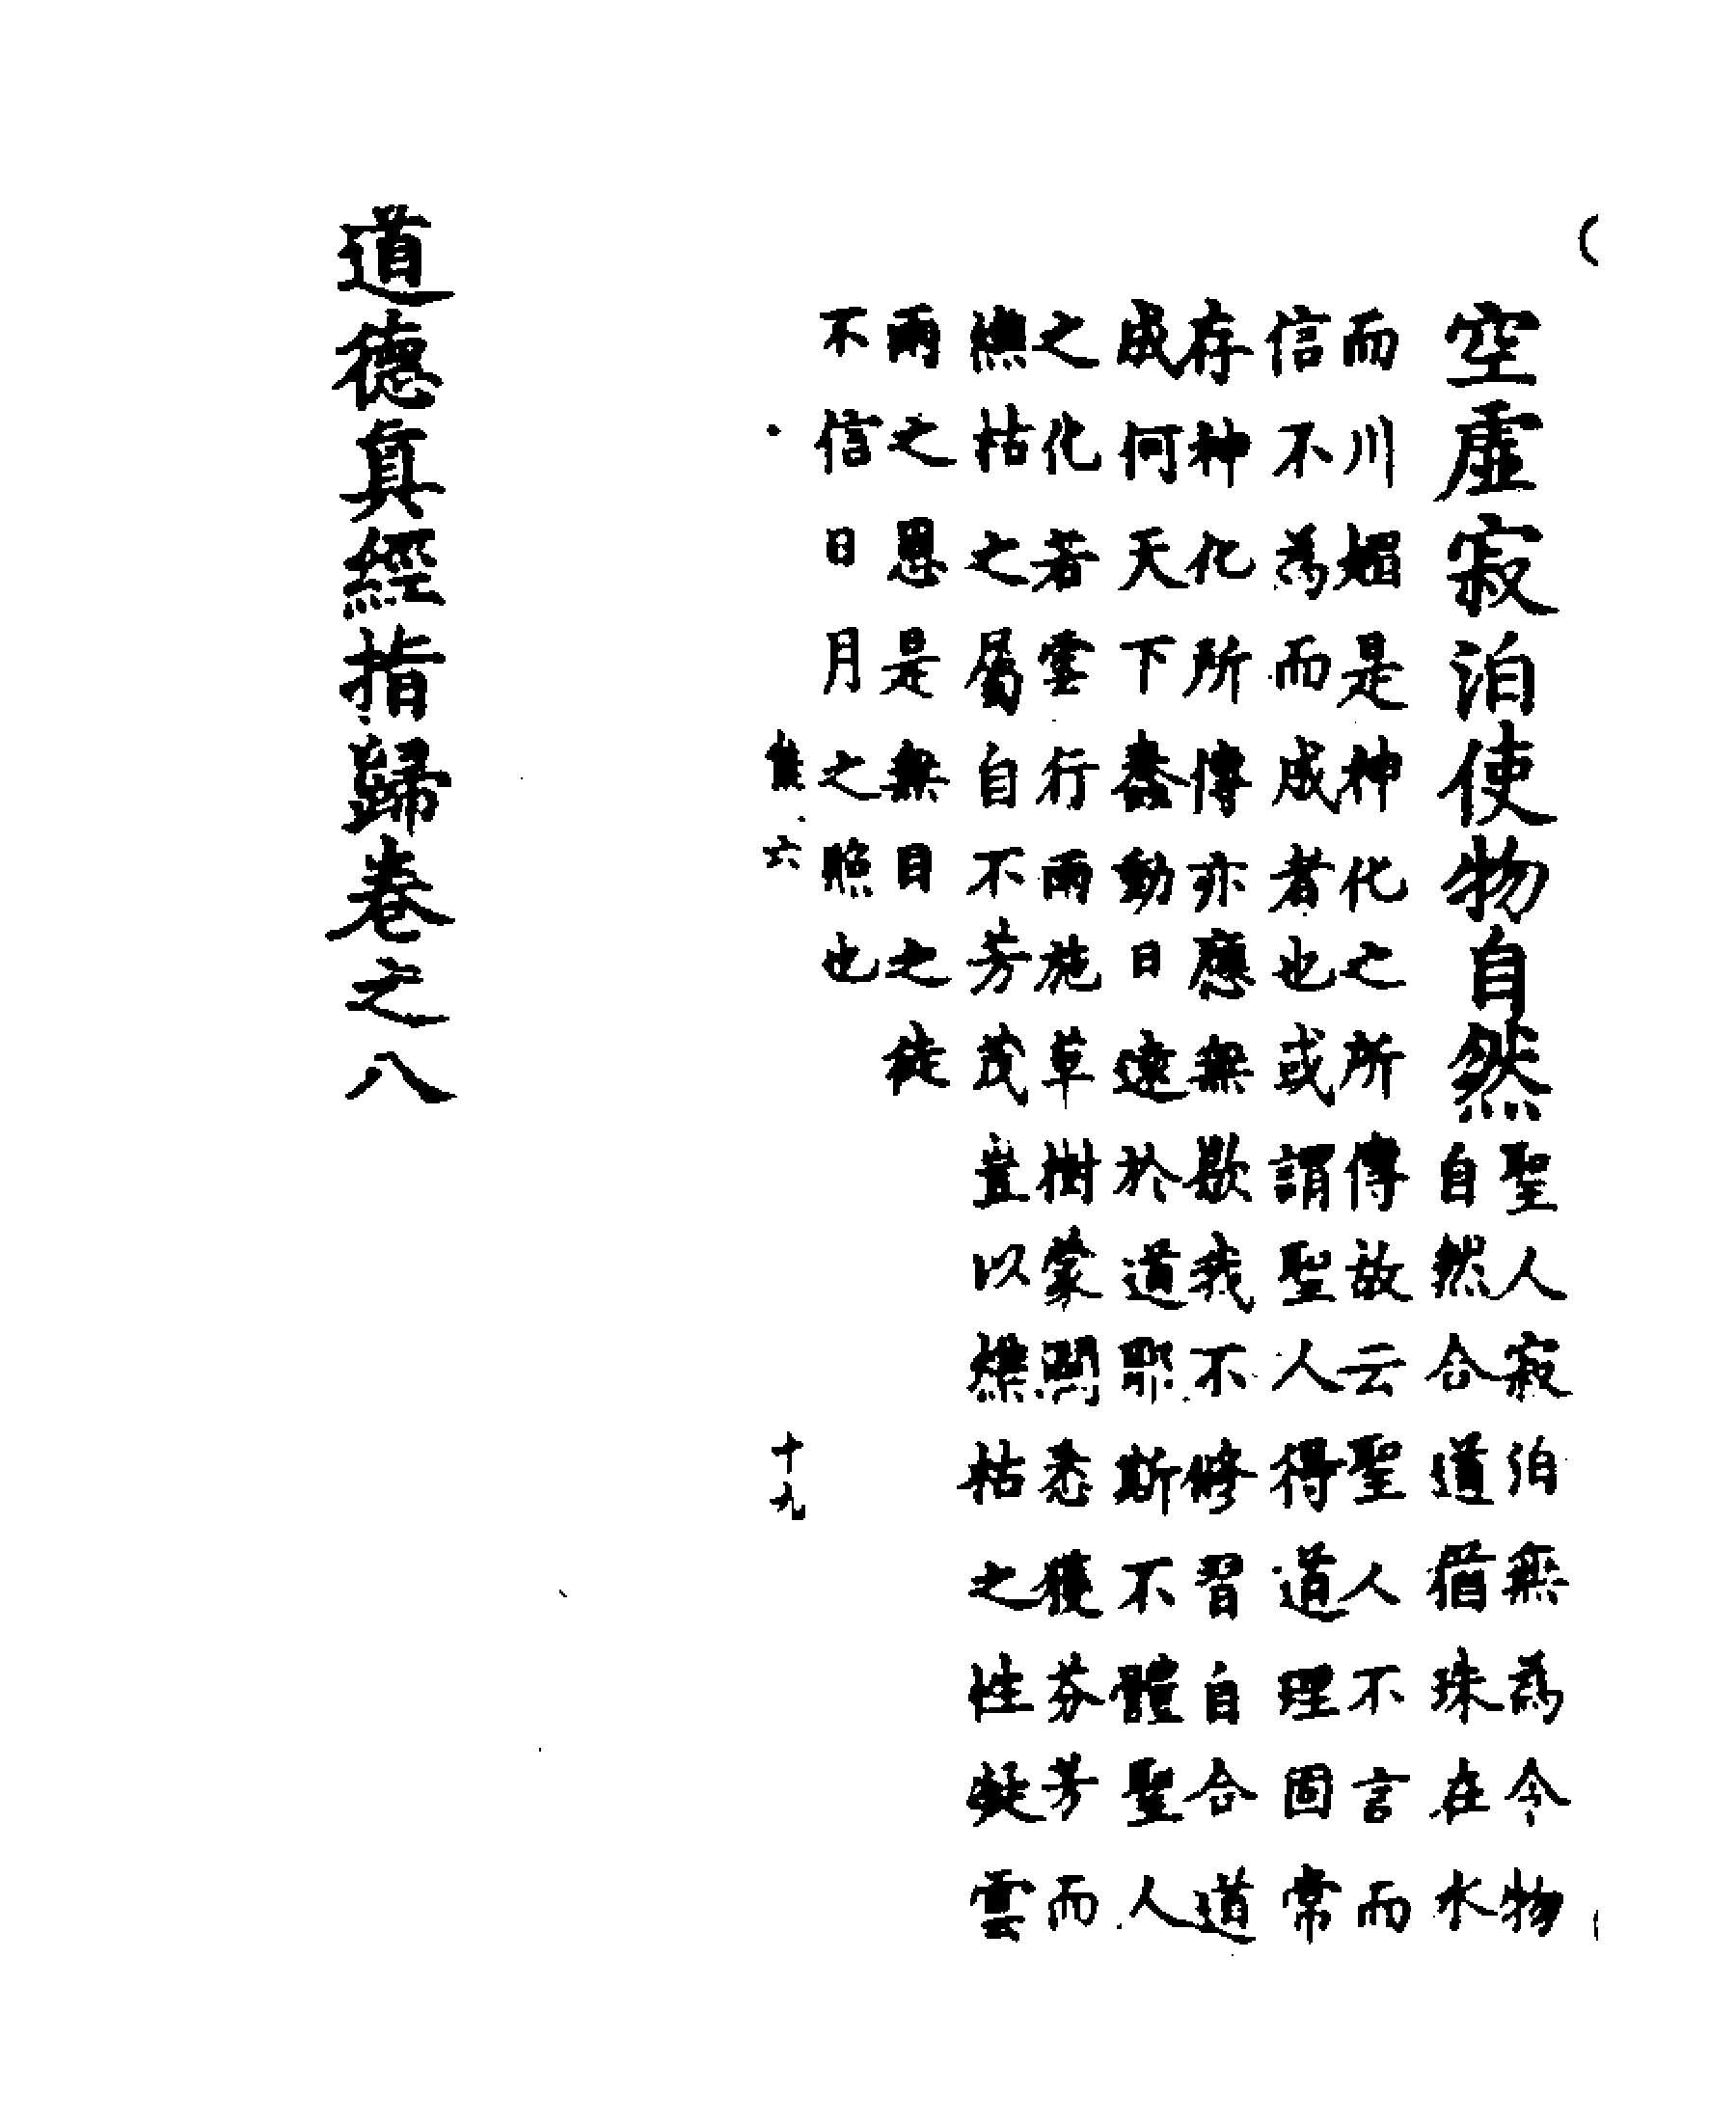 空虛寂泊使物自然聖人寂泊無為今物
自然合道猶珠在水
而川媚是神化之所傳故云聖人不言而
信不為而成者也或謂聖人得道理固常
存神化所傳亦應無歇我不修習自合道
成何天下蠢動日遠於道耶斯不體聖人
之化若雲行雨施草樹蒙閏悉獲芬芳而
燋枯之屬自不芳茂豈以燋枯之性疑雲
雨之恩是無目之徒
不信日月之照也
熊六
十九
道德真經指歸卷之八